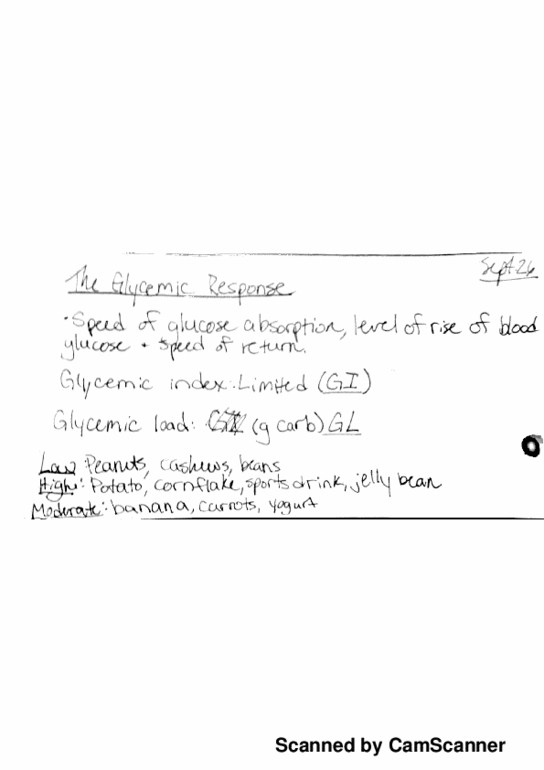 Sept 26
The Glycemic Response
·Speed of glucose absorption, level of rise of blood
glucose + speed of return.
Glycemic index: Limited (GI)
Glycemic load: (g carb) GL
Low: Peanuts, cashews, beans
High: Potato, cornflake, sports drink, jelly bean
Moderate: banana, carrots, yogurt
Scanned by CamScanner